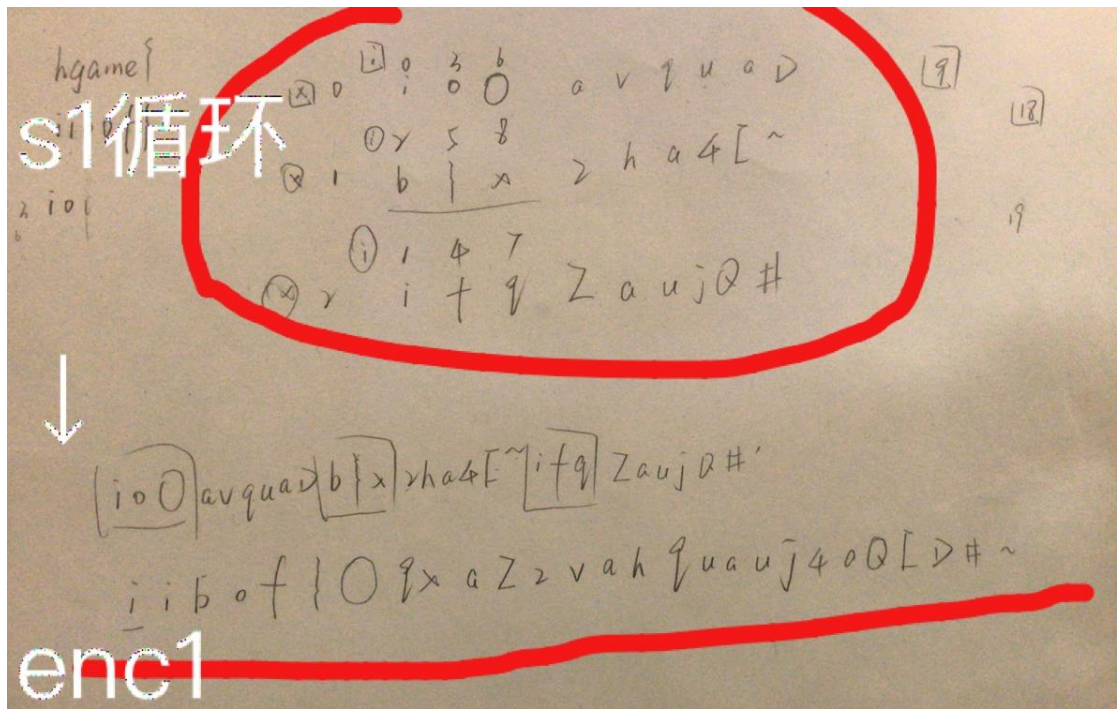 hgame{
s1循环
io{
i 0 3 6
x 0 i o O a v q u a D
9
18
i 2 5 8
x 1 b } x 2 h a 4 [ ~
19
i 1 4 7
x 2 i f q Z a u j Q #
↓
ioO avquaD b}x 2ha4[~ ifq ZaujQ#
i i b o f } O q x a Z 2 v a h q u a u j 4 a Q [ D # ~
enc1